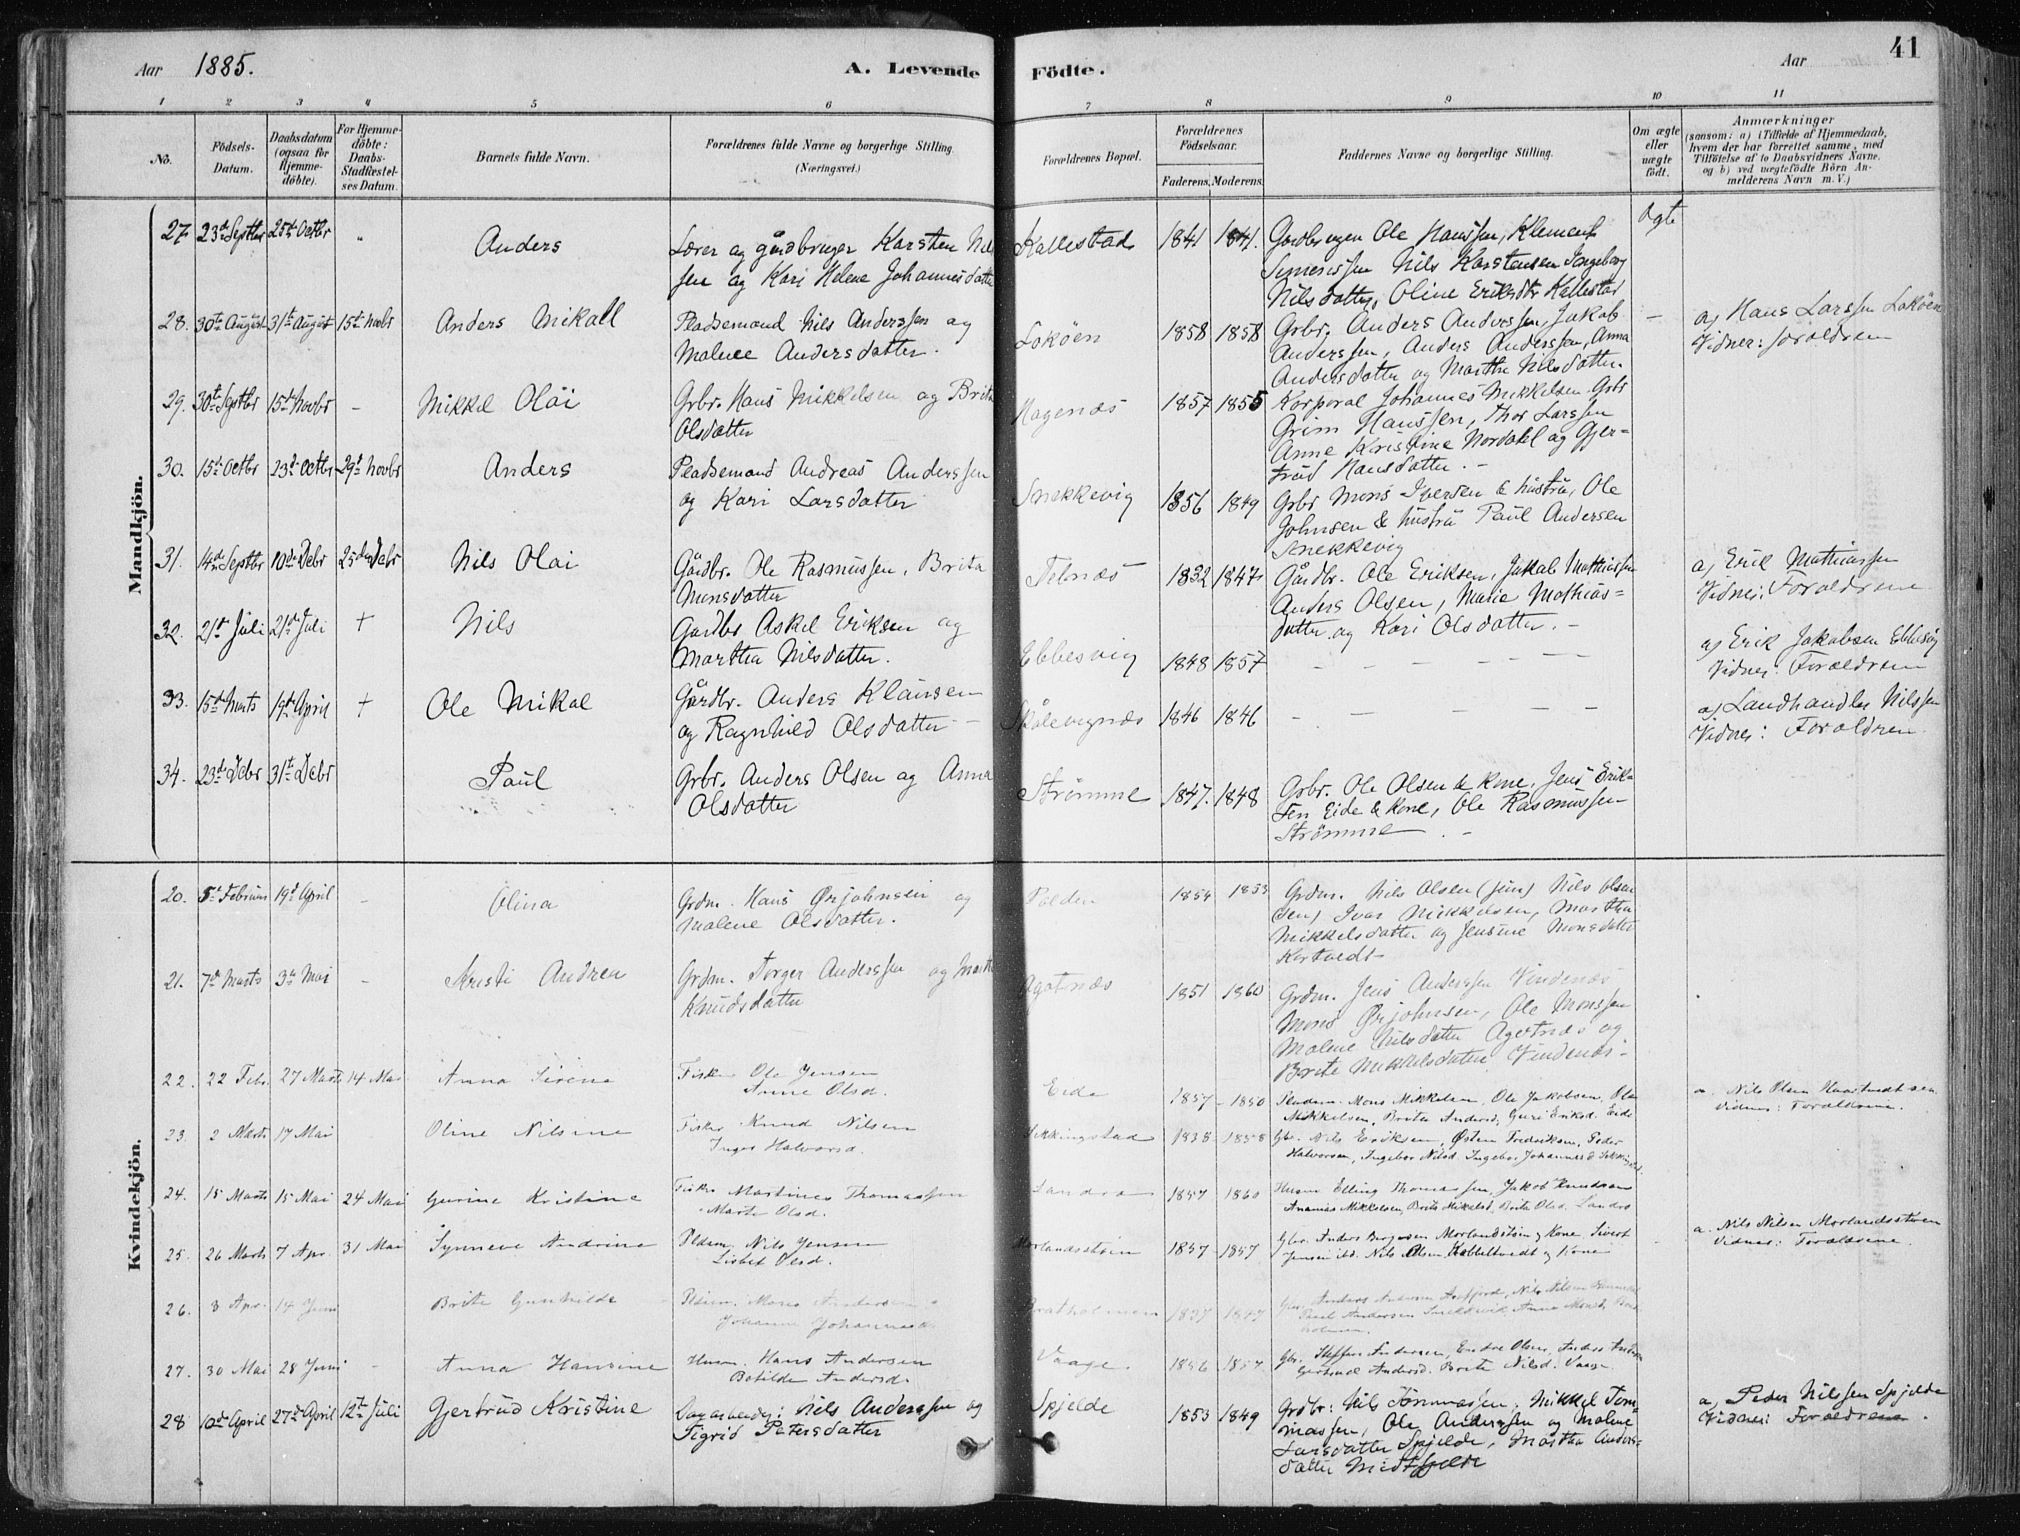 Aar 1885. A. Levende Födte. Aar 41
1 2 3 4 5 6 7 8 9 10 11
No. Födsels-Datum. Daabsdatum (ogsaa for Hjemme-döbte). For Hjemme-döbte: Daabs-Stadfæstel-ses Datum. Barnets fulde Navn. Forældrenes fulde Navne og borgerlige Stilling. (Næringsvei.) Forældrenes Bopæl. Forældrenes Födselsaar. Faderens. Moderens. Faddernes Navne og borgerlige Stilling. Om ægte eller uægte födt. Anmærkninger (saasom: a) i Tilfælde af Hjemmedaab, hvem der har forrettet samme, med Tilföielse af to Daabsvidners Navne, og b) ved uægtefödte Börn An-melderens Navn m. V.)
Mandkjön.
27. 23d Septbr 25d Octbr " Anders Lærer og gårdbruger Karsten Nil- Kallestad 1841 1841. Gardbrugen Ole Hanssen, Klement Ægte
sen og Kari Helene Johannesdatter Simonssen Nils Karstensen Ingeborg
Nilsdatter, Oline Eriksdtr Kallestad
28. 30te August 31te August 15de Novbr Anders Mikall Pladsemand Nils Anderssen og Lokøen 1858 1858 Grbr. Anders Anderssen, Jakob — a) Hans Larssen Lokøen
Malene Andersdatter. Anderssen, Anders Anderssen, Anna Vidner: Foraldren
Andersdatter og Martha Nilsdatter.
29. 30te Septbr 15de Novbr - Mikkel Olai Grbr. Hans Mikkelsen og Brita Hagenæs 1857 1855 Korporal Johannes Mikkelsen Grbr
Olsdatter Grim Hanssen, Thor Larssen
Anne Kristine Nordahl og Gjer-
trud Hansdatter. -
30. 15de Octbr 23d Octbr 29d Novbr Anders Pladsemand Andreas Anderssen Snekkevig 1856 1849 Grbr Mons Iversen & hustru, Ole
og Kari Larsdatter Johnsen & hustru Paul Andersen
Snekkevig
31. 14de Septbr 10de Debr 25de Debr Nils Olai Gårdbr. Ole Rasmussen, Brita Telnæs 1832 1847 Gårdbr. Ole Eriksen, Jakob Mathiassen a) Erik Mathiassen
Monsdatter Anders Olsen, Marie Mathias- Vidner: Foraldrene
datter og Kari Olsdatter. -
32. 21de Juli 21de Juli + Nils Gardbr Askel Eriksen og Ebbesvig 1848 1857 — — — — — — a) Erik Jakobsen Ebbesvig
Martha Nilsdatter. Vidner: Foraldren
33. 15de Marts 19de April + Ole Mikal Gårdbr. Anders Klausen Skålevignæs 1846 1846 — — — — — a) Landhandler Nilssen
og Ragnhild Olsdatter - Vidner: Foraldren
34. 23de Debr 31te Debr Paul Grbr. Anders Olsen og Anna Strømme 1847. 1848 Grbr. Ole Olsen & kone, Jens Erik-
Olsdatter sen Eide & kone, Ole Rasmussen
Strömme. -
Kvindekjön.
20. 5te Februar 19d April - Olina Grdm. Hans Ørjohnsen og Polden 1854 1853 Grdm. Nils Olsen (Jun) Nils Olsen
Malene Olsdatter. Sen) Ivar Mikkelsen, Martha
Mikkelsdatter og Jensine Monsdatter
Kortvedt
21. 7de Marts 3de Mai - Kristi Andrea Grdm. Torger Anderssen og Marta Agotnæs 1851 1860 Grdm. Jens Anderssen Vindenæs
Knudsdatter Mons Ørjohnsen, Ole Monssen
Malene Nilsdatter Agotnæs og
Brite Mikkelsdatter Vindenæs -
22. 22 Febr. 27 Marts 14 Mai Anna Sirene Fisker Ole Jensen Eide 1857 - 1850 Pladsm. Mons Mikkelsen, Ole Jakobsen, Ole a. Nils Olsen Haartvedt sen
Anne Olsd. Mikkelsen, Brita Andersd, Guri Eriksd. Eide Vidner: Foraldrene.
23. 2 Marts 17 Mai Oline Nilsine Fisker Knud Nilsen Sekkingstad 1838 - 1858 Gbr. Nils Eriksen, Østen Fredriksen, Peder
Inger Halvorsd. Halvorsen, Ingebor Nilsd. Ingebor Johannesd
24. 15 Marts 15 Mai 24 Mai Gurine Kristine Fisker Martinus Thomassen Landro 1857 1860 Husm Elling Thomassen, Jakob Knudsen
Marte Olsd. Ananias Mikkelsen, Brite Mikelsd, Brite Olsd. Landro
25. 26 Marts 7 Apr. 31 Mai Synneve Andrine Pldsm. Nils Jensen Morlandsstøen 1857 - 1857 Gbr. Anders Morlandstøen & Kone, Sivert a. Nils Nilsen Morlandsstøen
Lisbet Olsd. Jensen ibd. Nils Olsen, Kobbeltvedt & Kone Vidner: Foraldrene.
26. 8 Apr. 14 Juni Brite Gunhilde Pldsm. Mons Andersen Bratholmen 1837 1847 Gbr.
Johanne Johannesd. Paul Andersen Snekkevik, Anna Monsd,
27. 30 Mai 28 Juni - Anna Hansine Husm. Hans Andersen Vaage. 1856 1857 Gbr. Steffen Andersen, Endre Olsen, Anders
Botilde Andersd. Gertrud Andersd. Brite Nilsd. Vaage
28 10de April 27de April 12te Juli Gjertrud Kristine Dagarbeider: Nils Anderssen og Spjelde 1853 1849 Grdbr: Nils Tommassen, Mikkel Tom- a) Peder Nilssen Spjelde
Sigrid Petersdatter massen, Ole Anderssen og Malene Vidner: Foraldrene.
Larsdatter Spjelde, Martha Anders-
datter Midtspelde